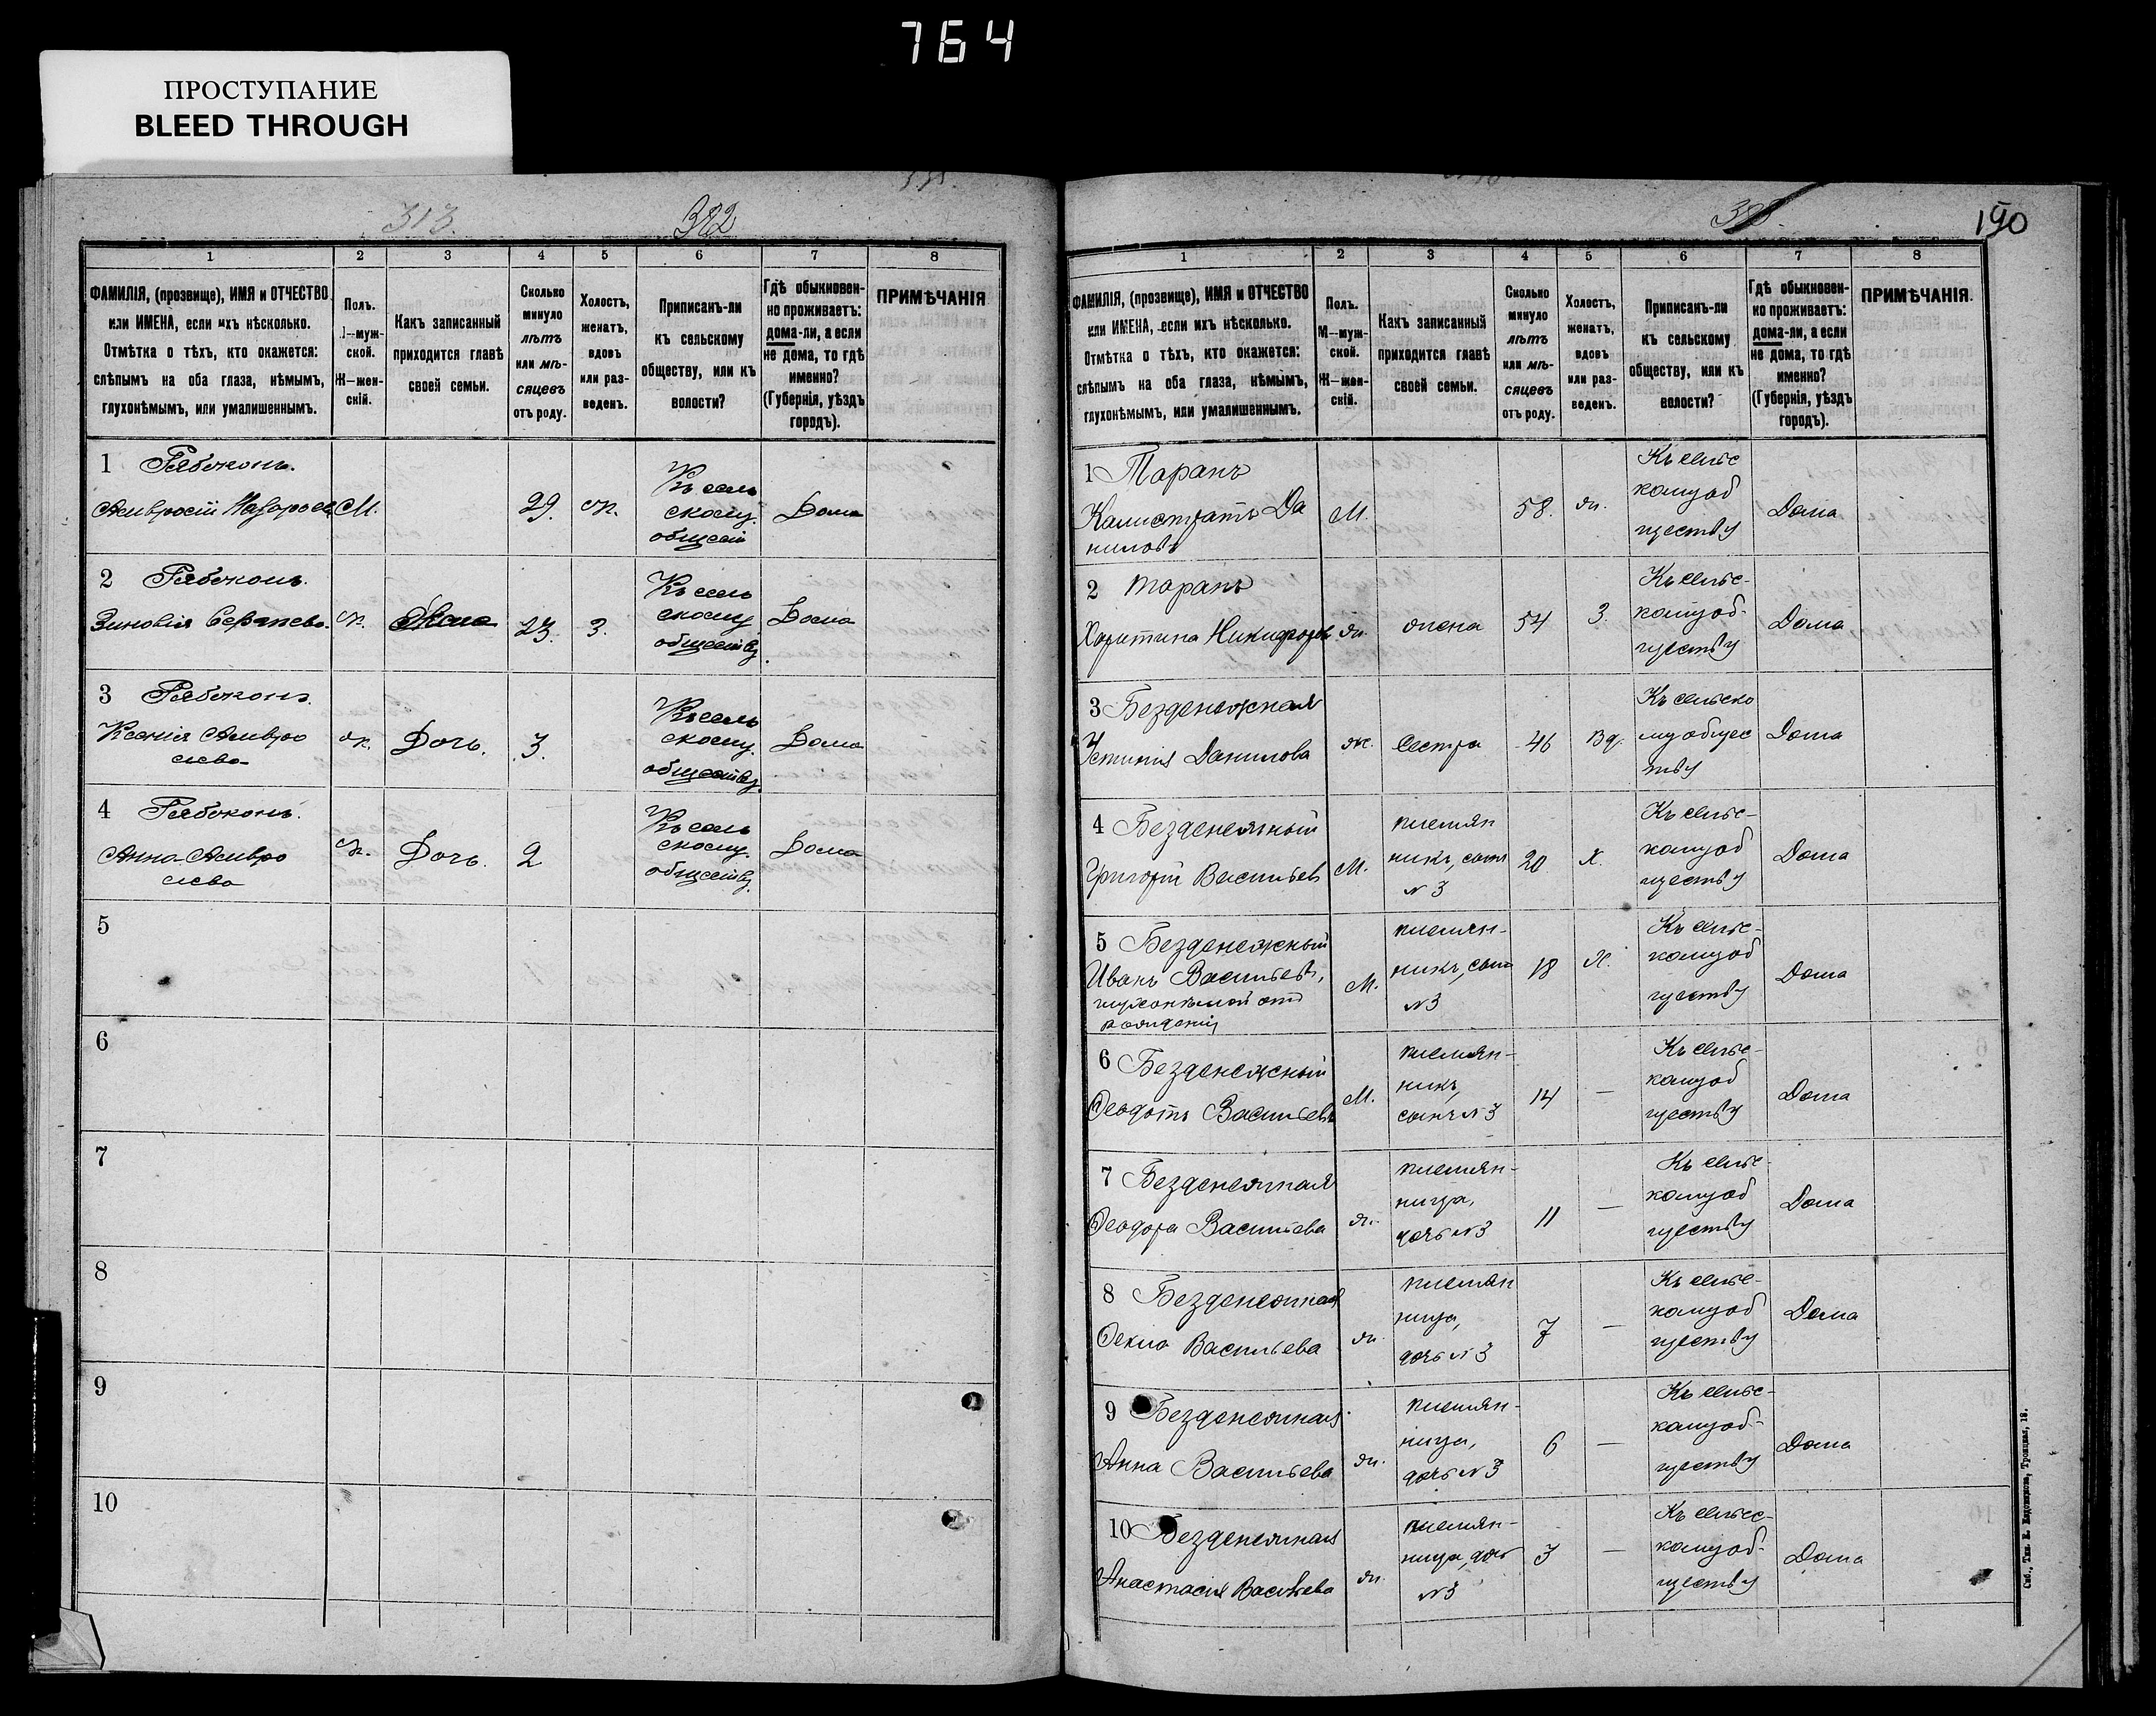 764
ПРОСТУПАНИЕ
BLEED THROUGH
313.
322
1 2 3 4 5 6 7 8
ФАМИЛІЯ, (прозвище), ИМЯ и ОТЧЕСТВО
или ИМЕНА, если ихъ нѣсколько.
Отмѣтка о тѣхъ, кто окажется:
слѣпымъ на оба глаза, нѣмымъ,
глухонѣмымъ, или умалишеннымъ.
Полъ.
М—муж-
ской.
Ж—жен-
скій.
Какъ записанный
приходится главѣ
своей семьи.
Сколько
минуло
лѣтъ
или мѣ-
сяцевъ
отъ роду.
Холостъ,
женатъ,
вдовъ
или раз-
веденъ.
Приписанъ-ли
къ сельскому
обществу, или къ
волости?
Гдѣ обыкновен-
но проживаетъ:
дома-ли, а если
не дома, то гдѣ
именно?
(Губернія, уѣздъ
городъ).
ПРИМѢЧАНІЯ
1 Рябоконь.
Амвросій Назаровъ М. 29. ж.
Къ сель
скому
общест
Дома
2 Рябоконь.
Зиновія ж. Жена 23. З.
Къ сель
скому
обществу
Дома
3 Рябоконь.
Ксенія Амвро
сиева
ж. Дочь. 3.
Къ сель
скому
обществу.
Дома
4 Рябоконь.
Анна Амвро
сиева
ж. Дочь. 2
Къ сель
скому.
обществу.
Дома
5
6
7
8
9
10
190
1 2 3 4 5 6 7 8
ФАМИЛІЯ, (прозвище), ИМЯ и ОТЧЕСТВО
или ИМЕНА, если ихъ нѣсколько.
Отмѣтка о тѣхъ, кто окажется:
слѣпымъ на оба глаза, нѣмымъ,
глухонѣмымъ, или умалишеннымъ.
Полъ.
М—муж-
ской.
Ж—жен-
скій.
Какъ записанный
приходится главѣ
своей семьи.
Сколько
минуло
лѣтъ
или мѣ-
сяцевъ
отъ роду.
Холостъ,
женатъ,
вдовъ
или раз-
веденъ.
Приписанъ-ли
къ сельскому
обществу, или къ
волости?
Гдѣ обыкновен-
но проживаетъ:
дома-ли, а если
не дома, то гдѣ
именно?
(Губернія, уѣздъ
городъ).
ПРИМѢЧАНІЯ.
1 Таранъ
Калистратъ Да
ниловъ
М. 58. ж.
Къ сельс
кому об
ществу
Дома
2 Таранъ
Харитина Никифоров ж. жена 54 З.
Къ сельс-
кому об-
ществу
Дома
3 Безденежная
Устинія Данилова ж. Сестра 46 Вд.
Къ сельско
му общес
тву
Дома
4 Безденежный
Григорій Васильев М.
племян
никъ, сынъ
№ 3
20 Х.
Къ сельс-
кому об
ществу
Дома
5 Безденежный
Иванъ Васильевъ,
глухонѣмой отъ
рожденія
М.
племян-
никъ, сынъ
№ 3
18 Х.
Къ сельс-
кому об
ществу
Дома
6 Безденежный
Феодотъ Васильевъ М.
племян-
никъ,
сынъ № 3
14 —
Къ сельс-
кому об
ществу
Дома
7 Безденежная
Феодора Васильева ж.
племян-
ница,
дочь № 3
11 —
Къ сельс-
кому об
ществу
Дома
8 Безденежная
Фекла Васильева ж.
племян
ница,
дочь № 3
7 —
Къ сельс-
кому об
ществу
Дома
9 Безденежная
Анна Васильева ж.
племян-
ница,
дочь № 3
6 —
Къ сельс-
кому об-
ществу
Дома
10 Безденежная
Анастасія Васильева ж.
племян-
ница, дочь
№ 3
3 —
Къ сельс-
кому об-
ществу
Дома
Спб., Тип. Е. Евдокимова, Троицкая, 18.